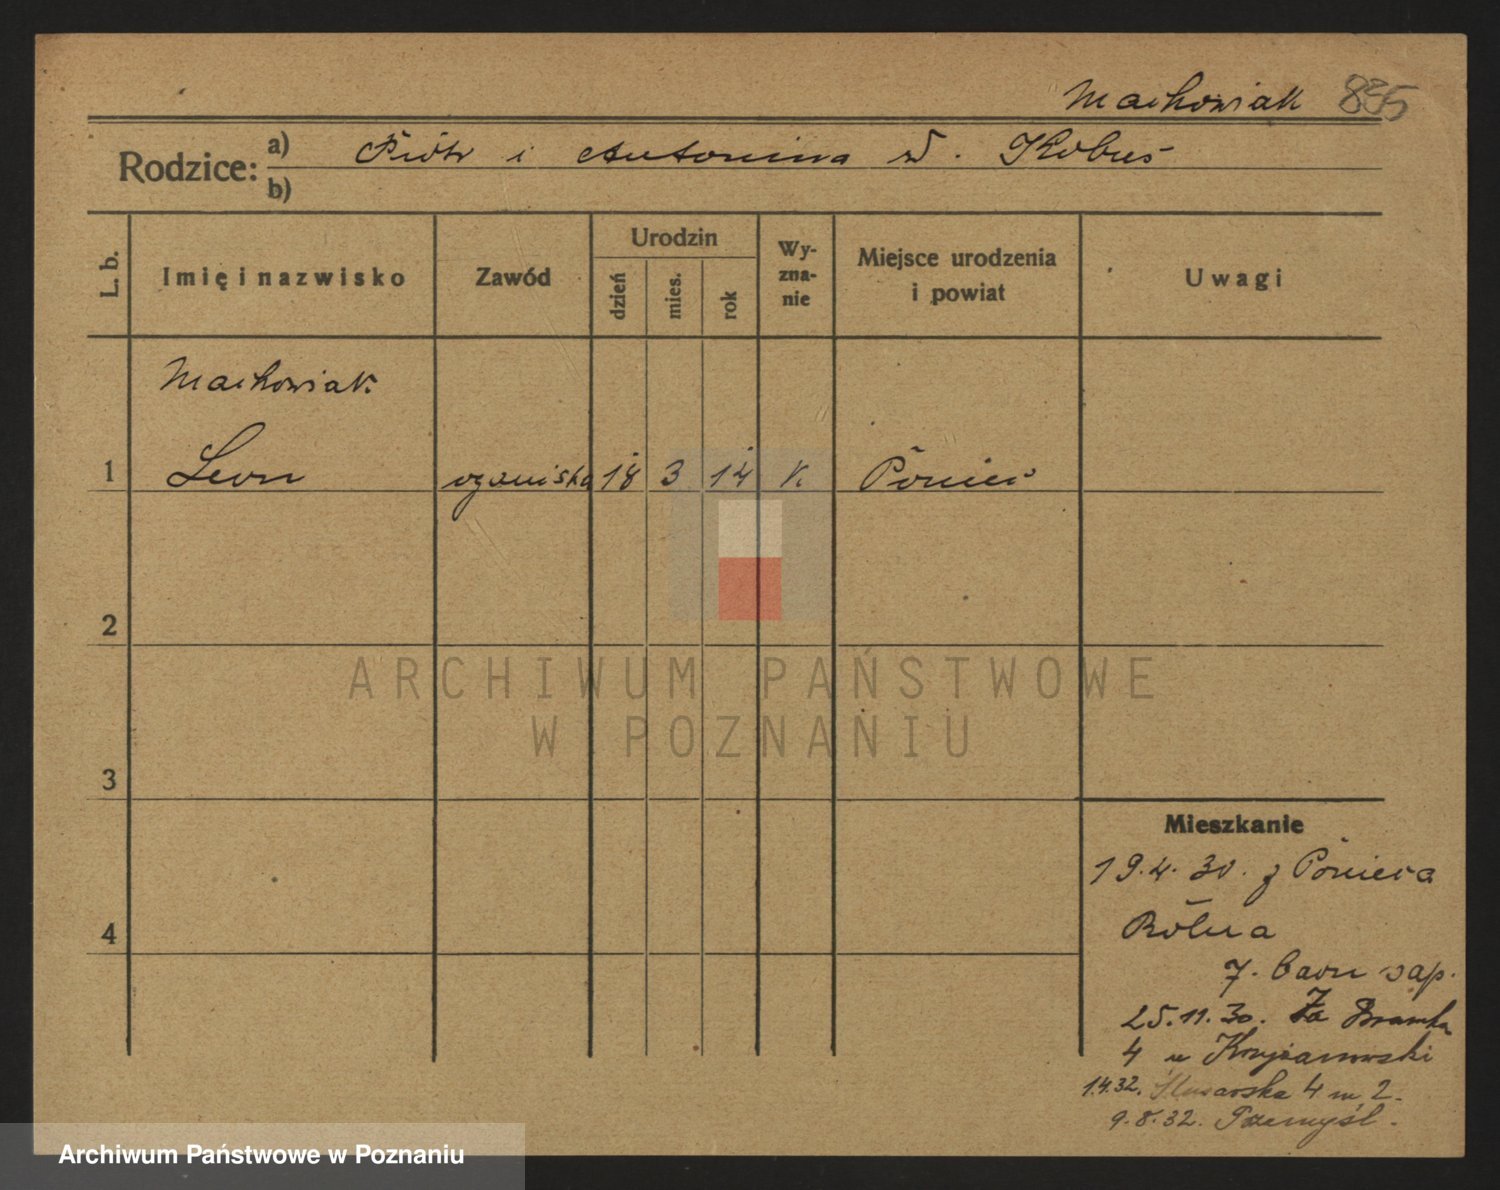 Machowiak 835
Rodzice: a) Piotr i Antonina d. Kobuś
b)
L. b.
Imię i nazwisko
Zawód
Urodzin
dzień
mies.
rok
Wy-
zna-
nie
Miejsce urodzenia
i powiat
Uwagi
Machowiak
1 Leon organista 18 3 14 k. Poniec
2
3
4
Mieszkanie
19.4.30. z Ponieca
Rólna
7. baon sap.
25.11.30. Za Bramką
4 u Krzyżanowski
1.4.32. Ślusarska 4 m 2.
9.8.32. Przemyśl.
ARCHIWUM PAŃSTWOWE
W POZNANIU
Archiwum Państwowe w Poznaniu